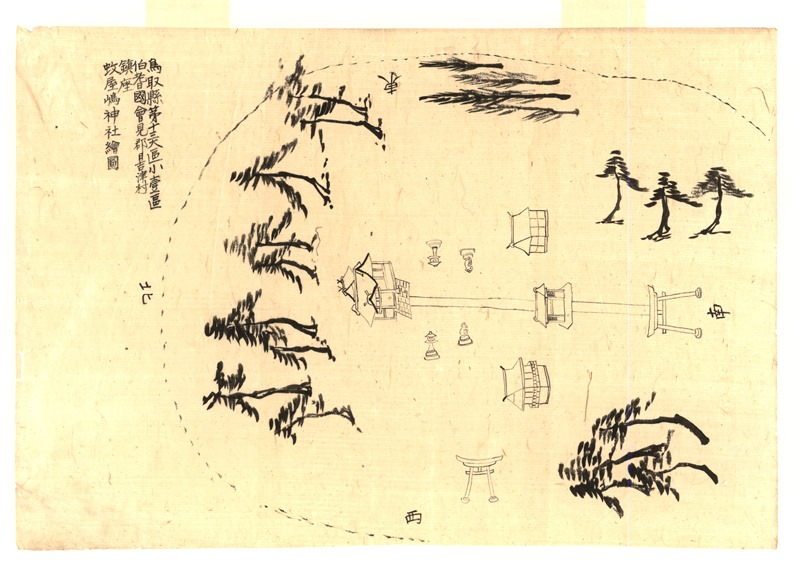 鳥取縣第十六大區小壹區
伯耆國會見郡日吉津村
鎮座
蚊屋嶋神社繪圖
東
北
南
西